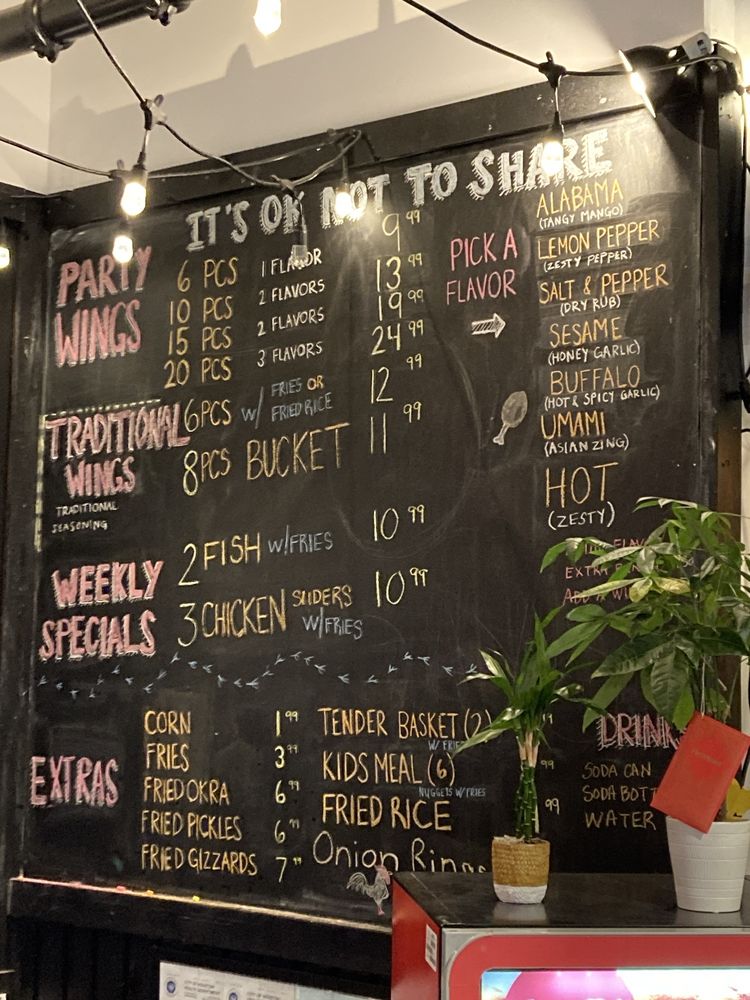 IT'S OK NOT TO SHARE
PARTY
WINGS
6 PCS 1 FLAVOR 9.99
10 PCS 2 FLAVORS 13.99
15 PCS 2 FLAVORS 19.99
20 PCS 3 FLAVORS 24.99
TRADITIONAL
WINGS
TRADITIONAL
SEASONING
6PCS W/ FRIES OR
FRIED RICE 12.99
8PCS BUCKET 11.99
WEEKLY
SPECIALS
2 FISH W/FRIES 10.99
3 CHICKEN SLIDERS
W/FRIES 10.99
PICK A
FLAVOR
ALABAMA
(TANGY MANGO)
LEMON PEPPER
(ZESTY PEPPER)
SALT & PEPPER
(DRY RUB)
SESAME
(HONEY GARLIC)
BUFFALO
(HOT & SPICY GARLIC)
UMAMI
(ASIAN ZING)
HOT
(ZESTY)
EXTRA
EXTRAS
CORN 1.99
FRIES 3.99
FRIED OKRA 6.99
FRIED PICKLES 6.99
FRIED GIZZARDS 7.99
TENDER BASKET (2)
W/ FRIES
KIDS MEAL (6)
NUGGETS W/ FRIES
FRIED RICE 99
Onion Rings
DRINK
SODA CAN
SODA BOTT
WATER